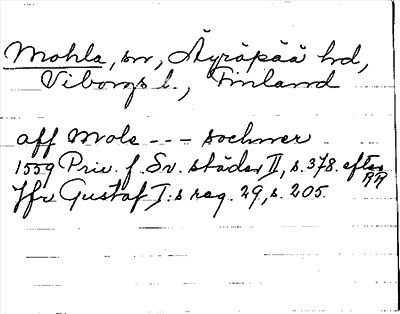 Mohla, sn, Äyräpää hd,
Viborgs l., Finland
aff Mole --- sochner
1559 Priv. f. Sv. städer II, s. 378. efter RR
Jfr Gustaf I:s reg. 29, s. 205.